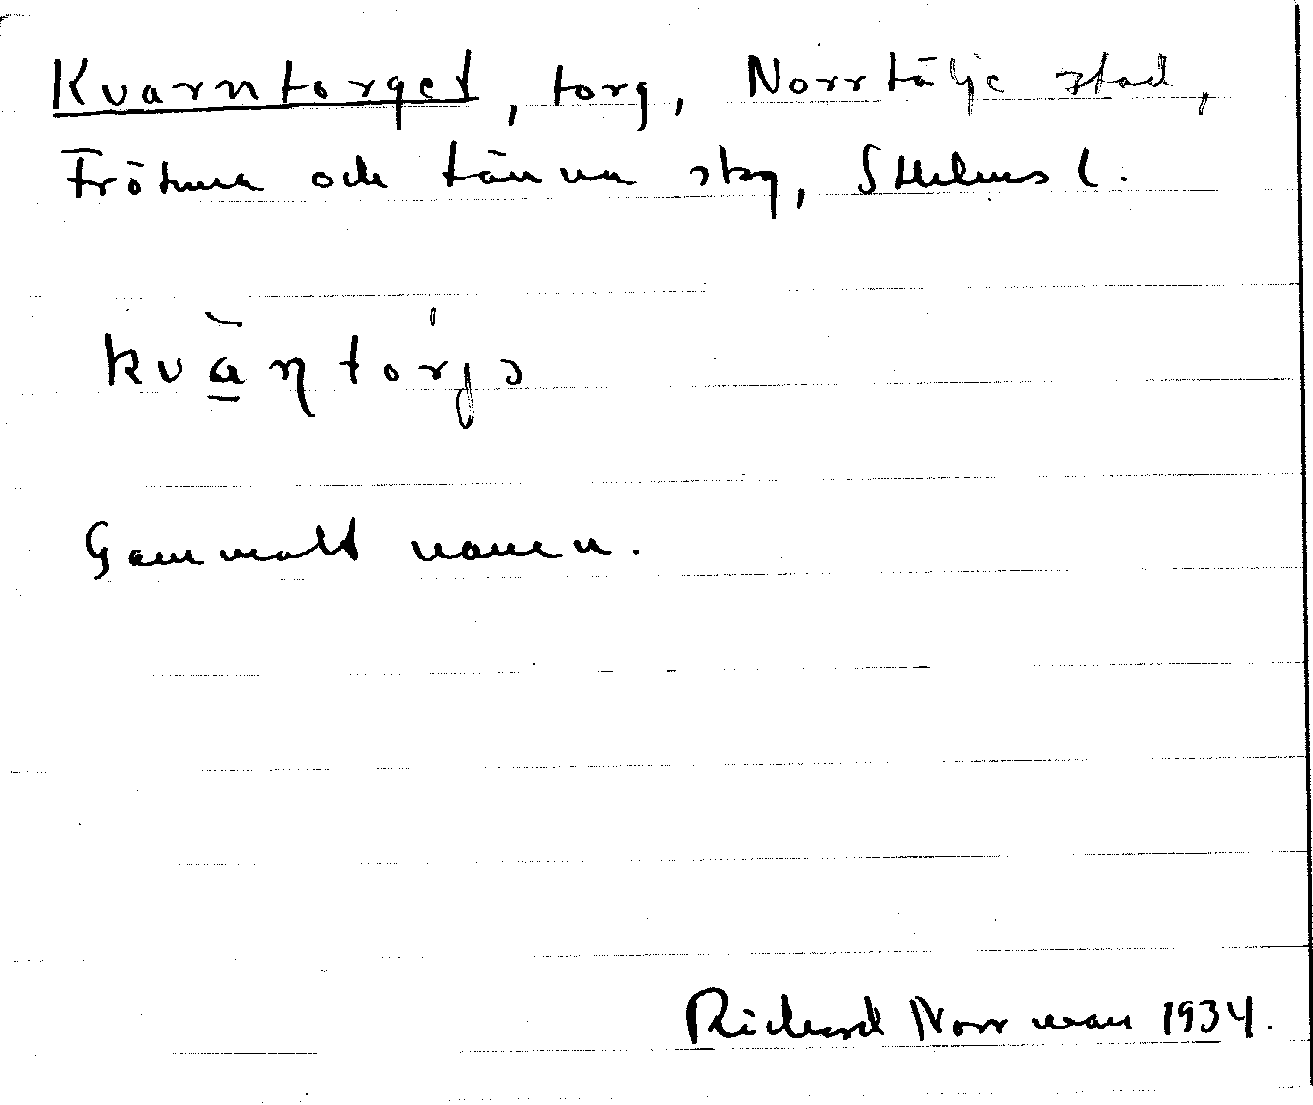 Kvarntorget, torg, Norrtälje stad,
Frötuna och Länna skg, Sthlms l.
kvàṇtórjə
Gammalt namn.
Richard Norrman 1934.